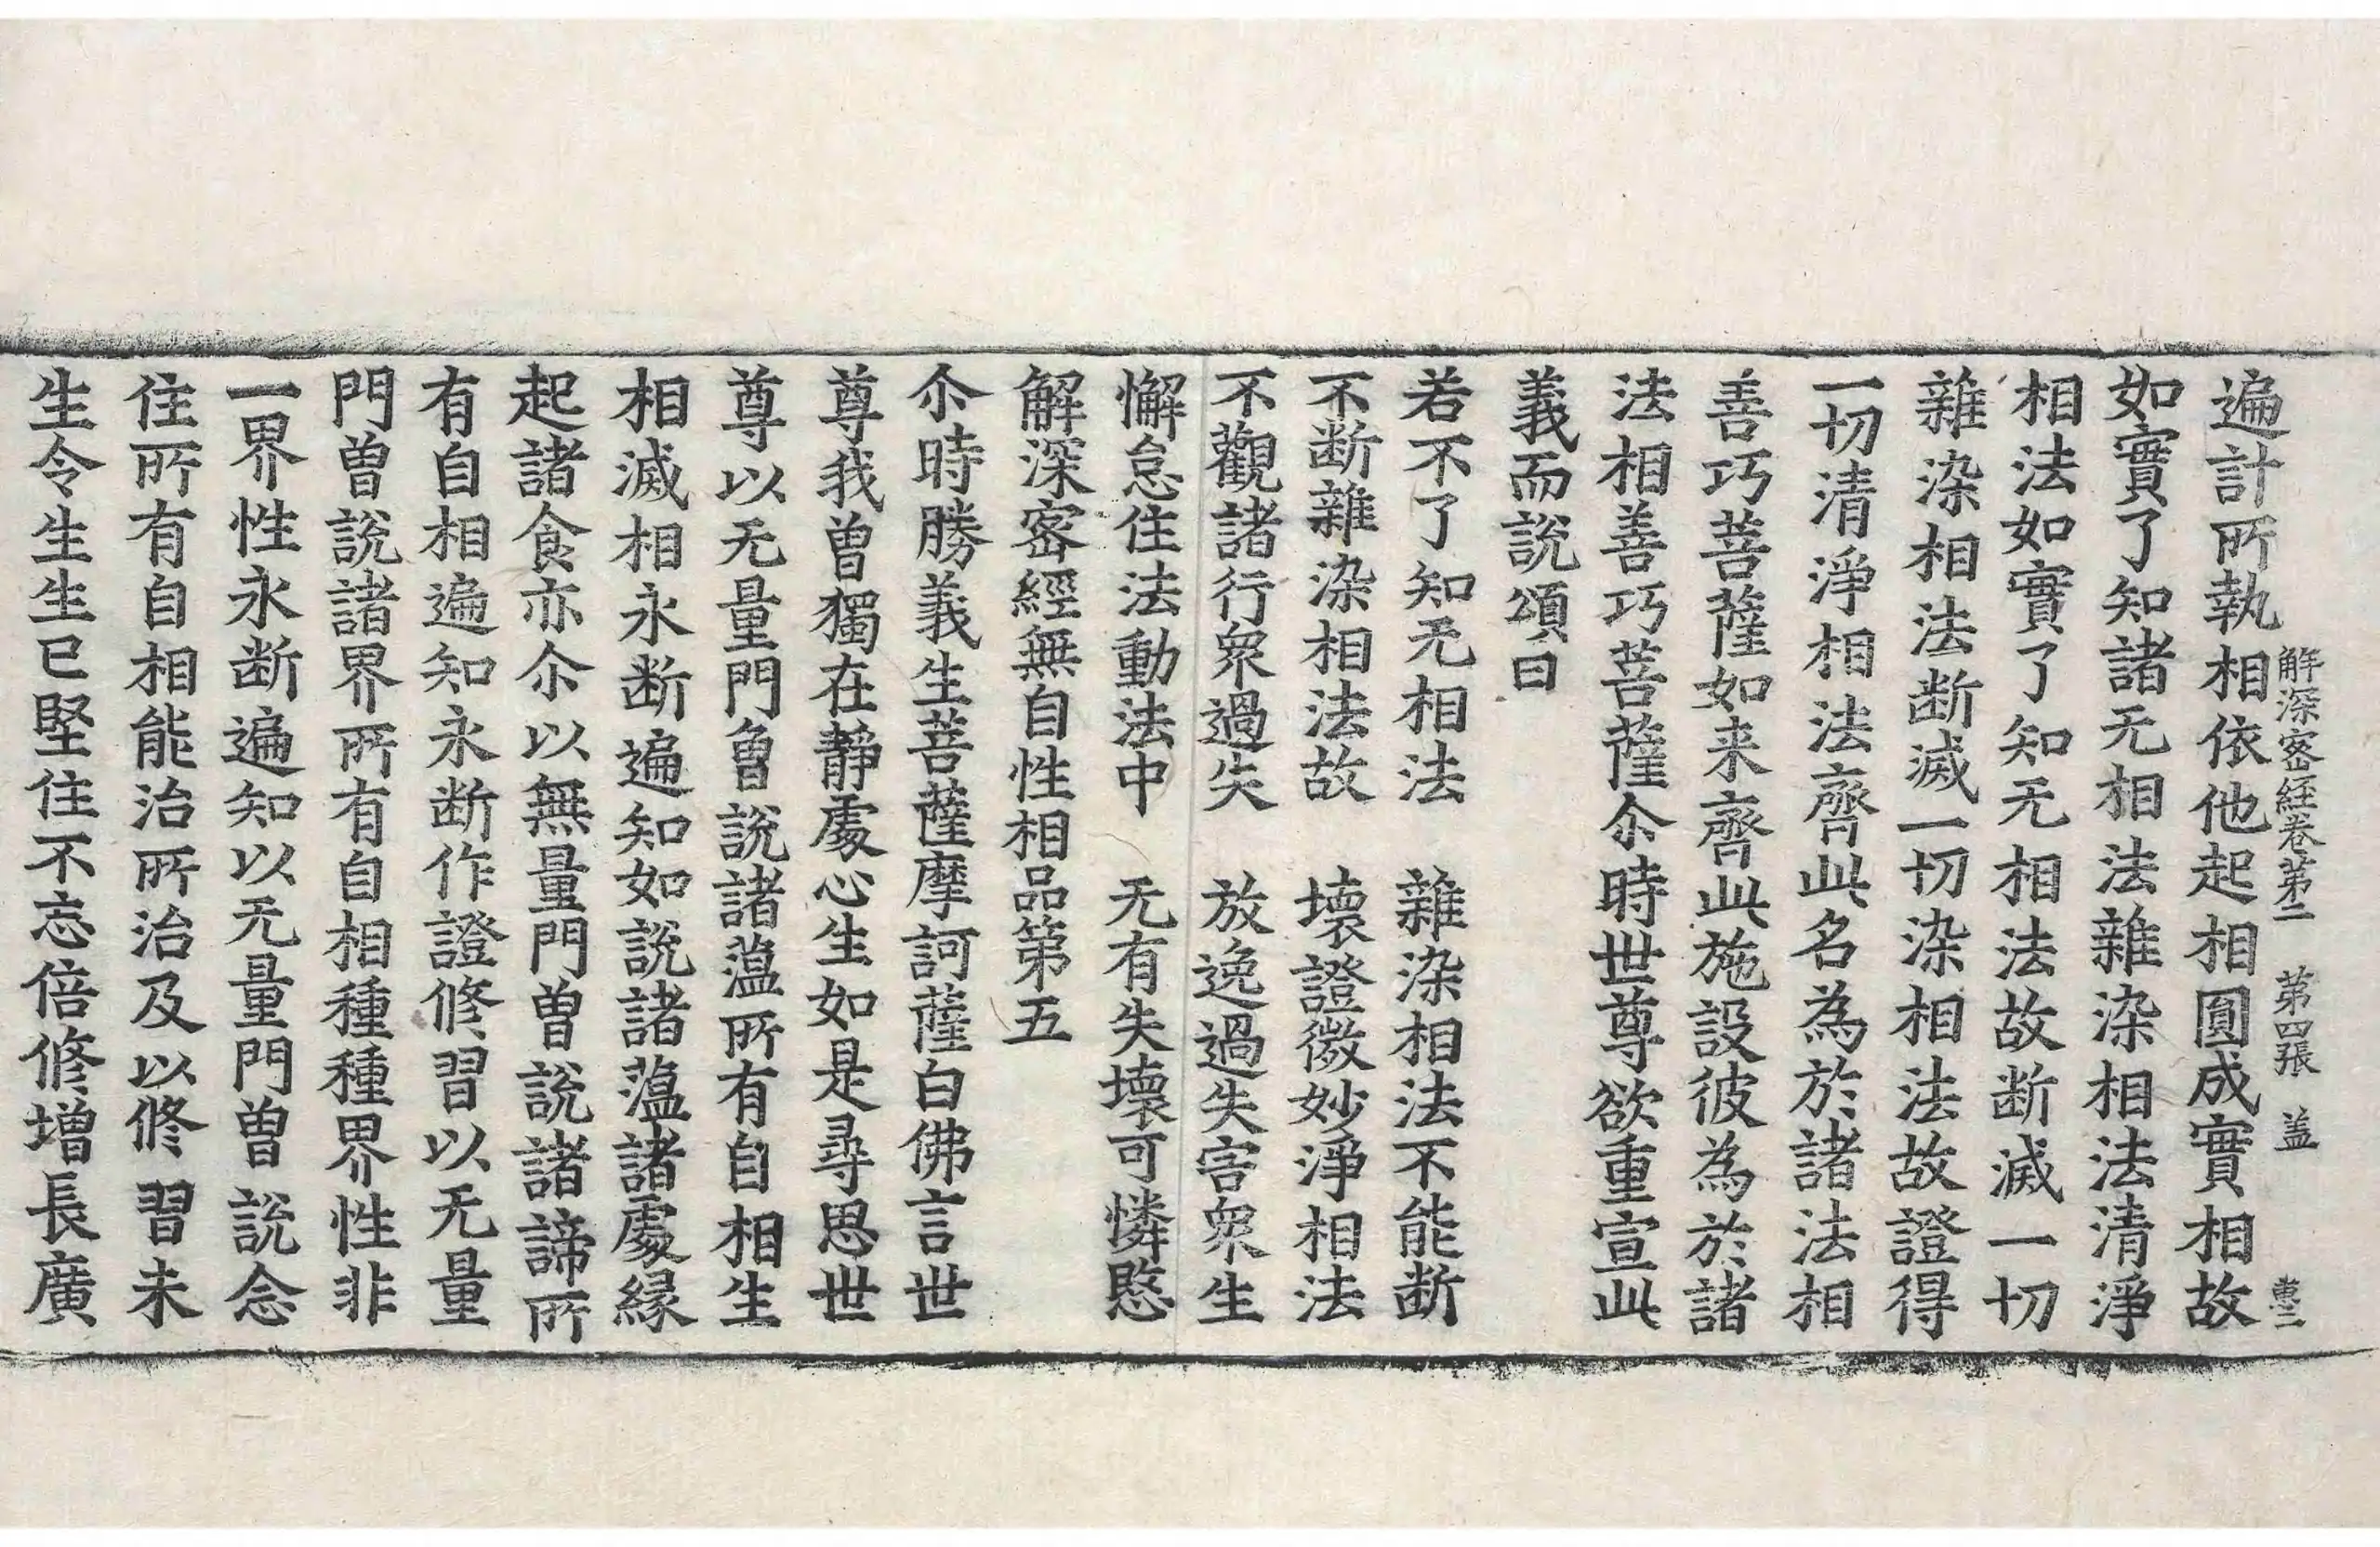 解深密經卷第二　第四張　盖　　恵二
遍計所執相依他起相圓成實相故
如實了知諸无相法雜染相法清淨
相法如實了知无相法故断滅一切
雜染相法断滅一切染相法故證得
一切清淨相法齊此名為於諸法相
善巧菩薩如来齊此施設彼為於諸
法相善巧菩薩尒時世尊欲重宣此
義而說頌曰
若不了知无相法　雜染相法不能断
不断雜染相法故　壞證微妙淨相法
不觀諸行衆過失　放逸過失害衆生
懈怠住法動法中　无有失壞可憐愍
解深密經無自性相品第五
尒時勝義生菩薩摩訶薩白佛言世
尊我曽獨在静處心生如是尋思世
尊以无量門曽說諸薀所有自相生
相滅相永断遍知如說諸薀諸處縁
起諸食亦尒以無量門曽說諸諦所
有自相遍知永断作證修習以无量
門曽說諸界所有自相種種界性非
一界性永断遍知以无量門曽說念
住所有自相能治所治及以修習未
生令生生已堅住不忘倍修增長廣